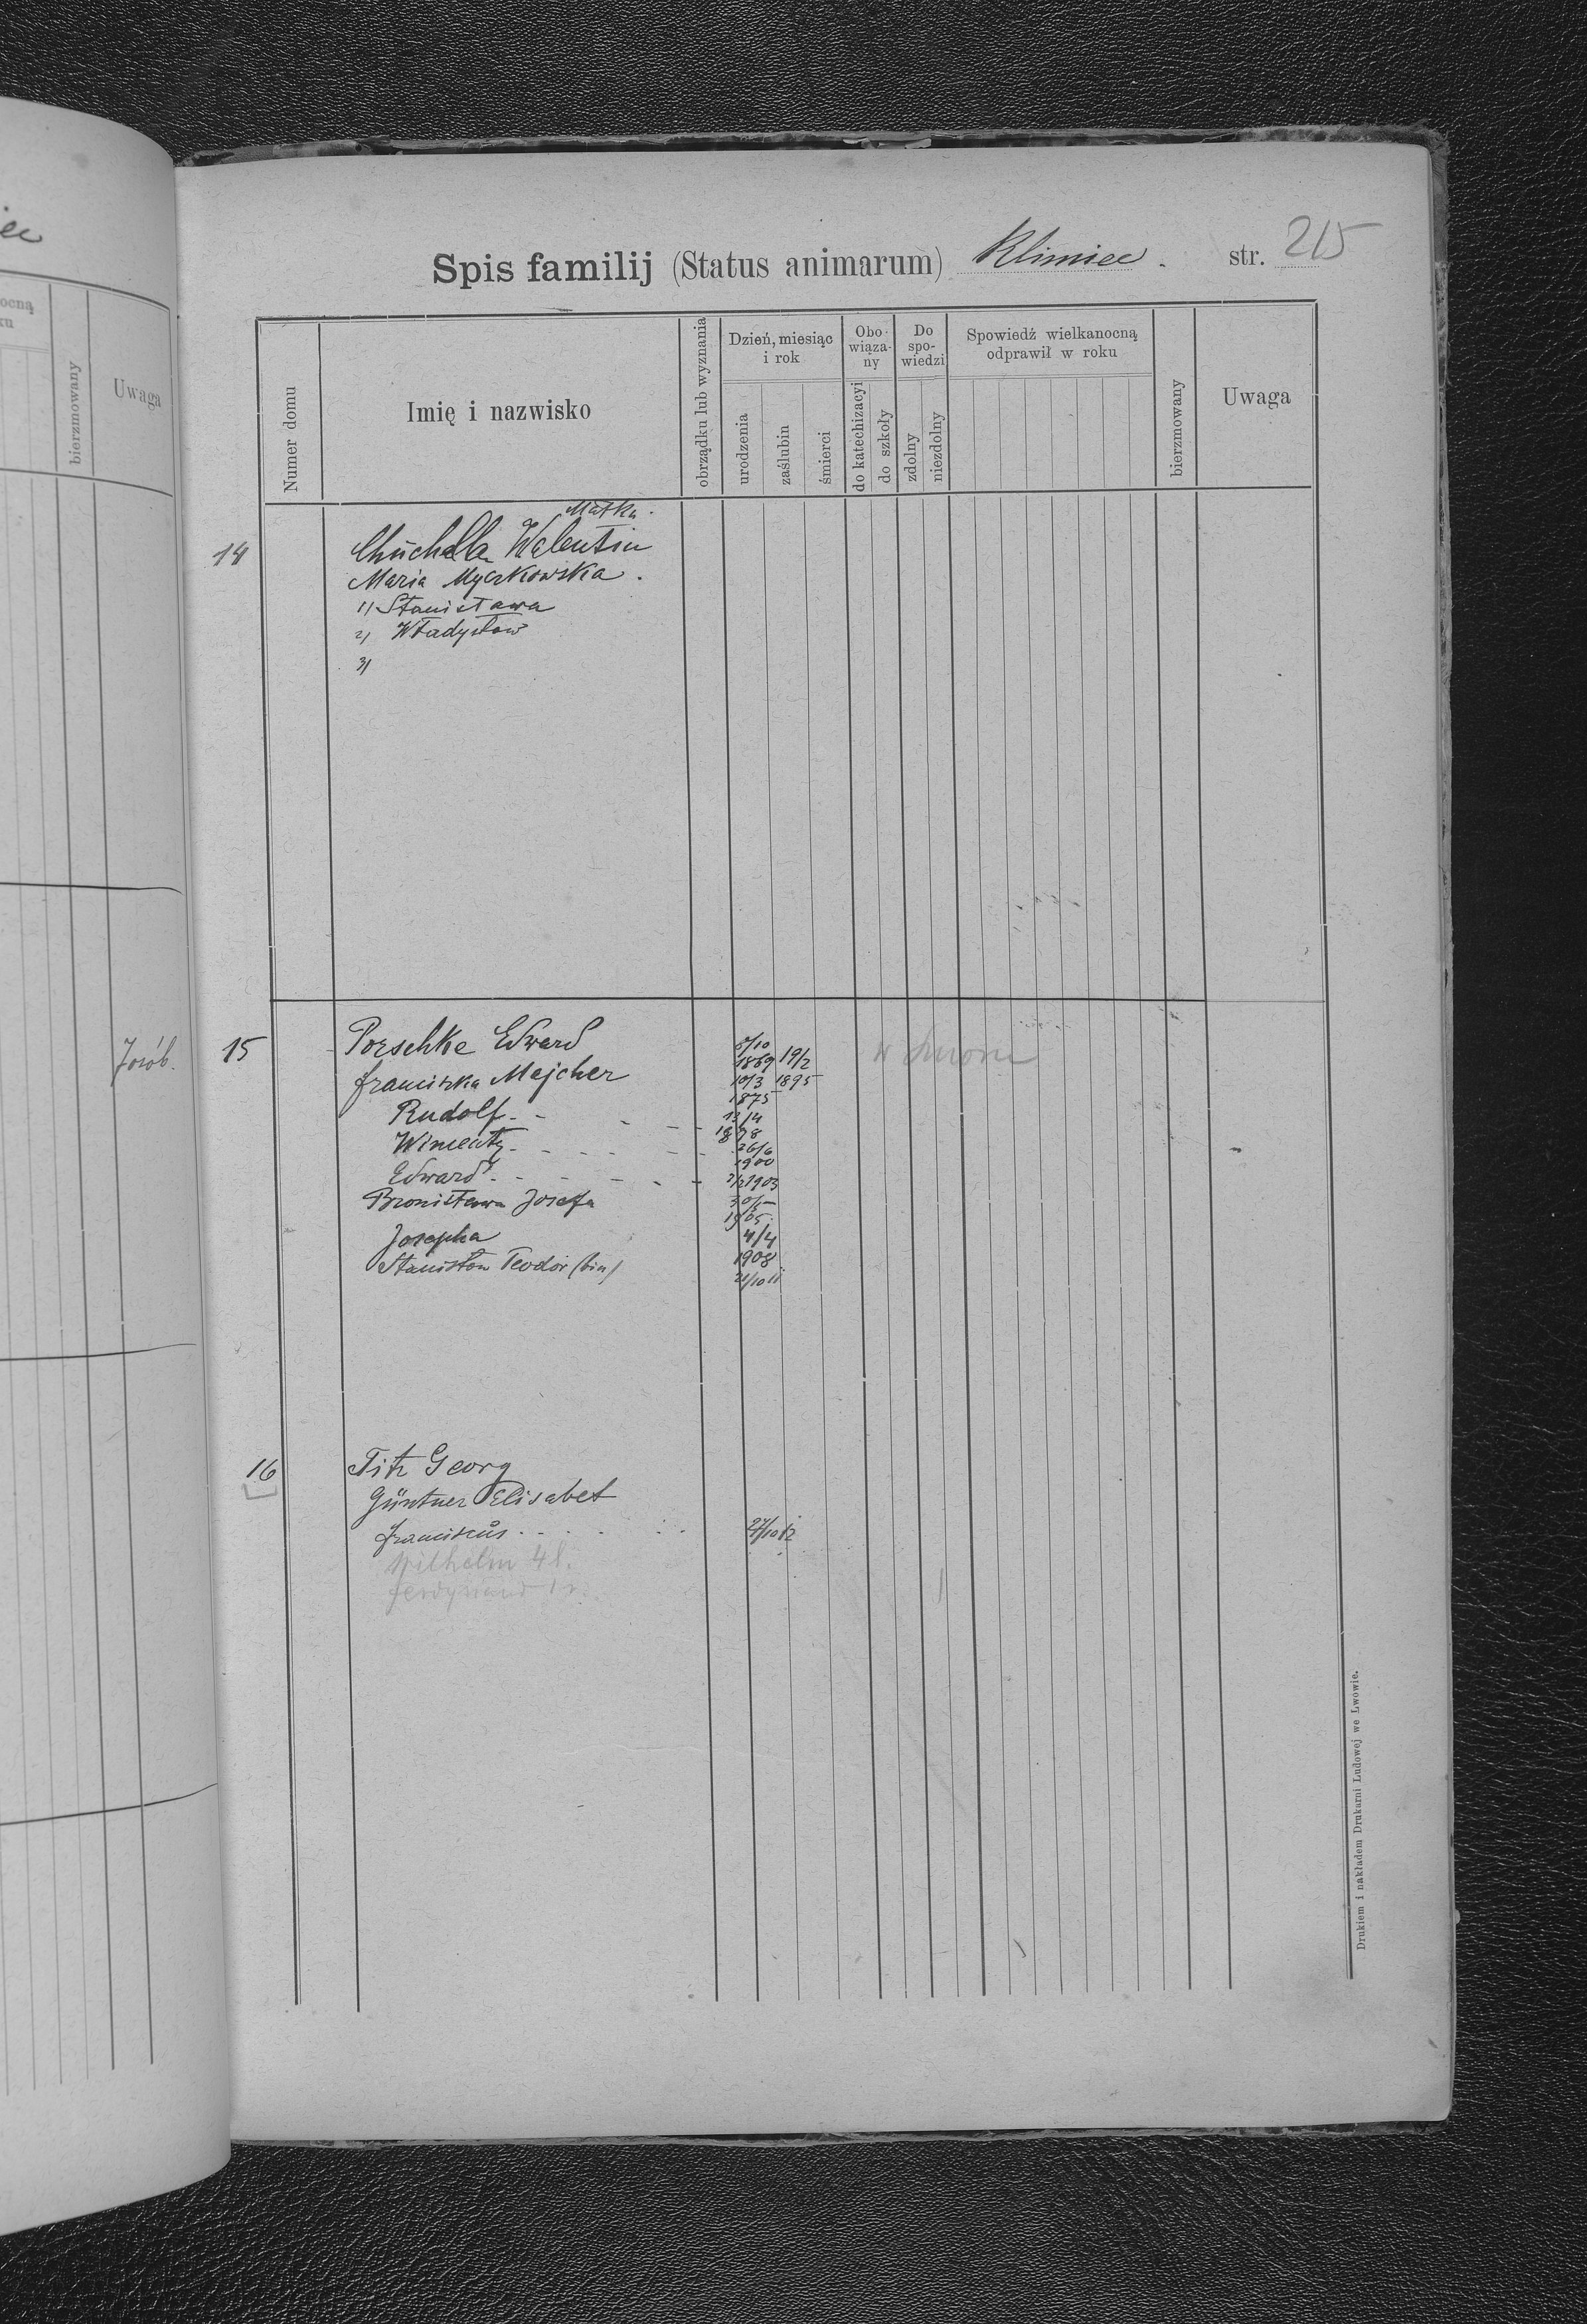 Spis familij (Status animarum) Klimiec. str. 215
Numer domu
Imię i nazwisko
obrządku lub wyznania
Dzień, miesiąc i rok
urodzenia
zaślubin
śmierci
Obowiąza-ny
do katechizacyi
do szkoły
Do spo-wiedzi
zdolny
niezdolny
Spowiedź wielkanocną
odprawił w roku
bierzmowany
Uwaga
Matka
14 Chuchalla Walentin
Maria Myczkowska.
1) Stanisława
2) Władysław
3)
15 Porschke Edward 5/10 1869 19/2 1895
Franciszka Majcher 10/3 1875
Rudolf 13/4 1898
Wincenty 26/6 1900
Edward 1903
Bronisława Josefa 1905
Josepha 4/4 1908
Stanisław Teodor (bin) 21/10 11
16 Titz Georg
Güntner Elisabet
Franciskus 27/10 12
Wilhelm 4 l.
Ferdynand 1 r.
Drukiem i nakładem Drukarni Ludowej we Lwowie.
ocną
bierzmowany
Uwaga